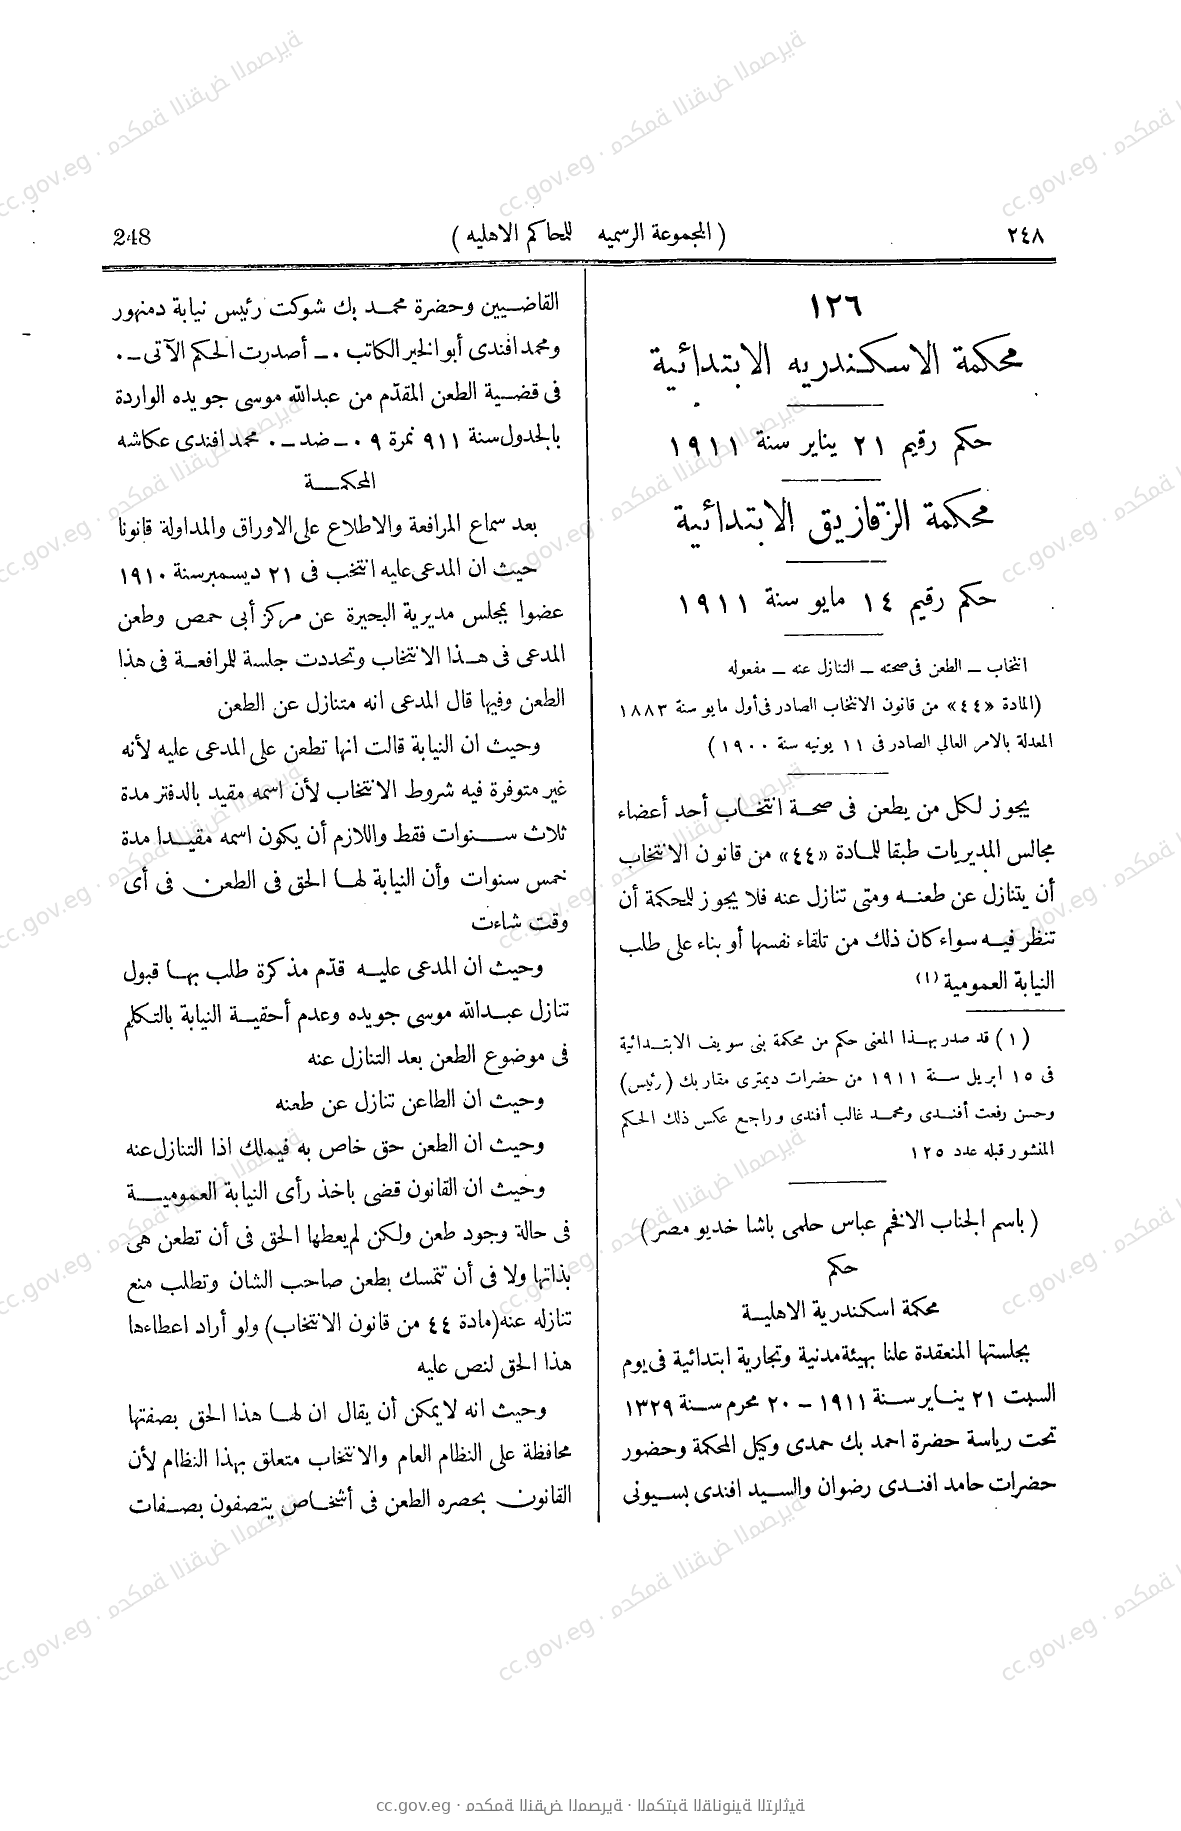 ٢٤٨
( المجموعة الرسميه للحاكم الاهليه )
248
١٢٦
محكمة الاسكندريه الابتدائية
حكم رقيم ٢١ يناير سنة ١٩١١
محكمة الزقازيق الابتدائية
حكم رقيم ١٤ مايو سنة ١٩١١
انتخاب ــ الطعن فى صحته ــ التنازل عنه ــ مفعوله
(المادة «٤٤» من قانون الانتخاب الصادر فى أول مايو سنة ١٨٨٣
المعدلة بالامر العالي الصادر فى ١١ يونيه سنة ١٩٠٠ )
يجوز لكل من يطعن فى صحة انتخاب أحد أعضاء
مجالس المديريات طبقا للمادة «٤٤» من قانون الانتخاب
أن يتنازل عن طعنه ومتى تنازل عنه فلا يجوز للمحكمة أن
تنظر فيه سواء كان ذلك من تلقاء نفسها أو بناء على طلب
النيابة العمومية (١)
(١) قد صدر بهذا المعنى حكم من محكمة بنى سويف الابتدائية
فى ١٥ ابريل سنة ١٩١١ من حضرات ديمترى مقار بك (رئيس)
وحسن رفعت أفندى ومحمد غالب أفندى وراجع عكس ذلك الحكم
المنشور قبله عدد ١٢٥
( باسم الجناب الافخم عباس حلمى باشا خديو مصر )
حكم
محكمة اسكندرية الاهلية
بجلستها المنعقدة علنا بهيئة مدنية وتجارية ابتدائية فى يوم
السبت ٢١ يناير سنة ١٩١١ – ٢٠ محرم سنة ١٣٢٩
تحت رياسة حضرة احمد بك حمدى وكيل المحكمة وحضور
حضرات حامد افندى رضوان والسيد افندى بسيونى
القاضيين وحضرة محمد بك شوكت رئيس نيابة دمنهور
ومحمد افندى أبو الخير الكاتب ٠ــ أصدرت الحكم الآتى ــ٠
فى قضية الطعن المقدّم من عبدالله موسى جويده الواردة
بالجدول سنة ٩١١ نمرة ٩ ٠ــ ضد ــ٠ محمد افندى عكاشه
المحكمة
بعد سماع المرافعة والاطلاع على الاوراق والمداولة قانونا
حيث ان المدعى عليه انتخب فى ٢١ ديسمبر سنة ١٩١٠
عضوا بمجلس مديرية البحيرة عن مركز أبى حمص وطعن
المدعى فى هذا الانتخاب وتحددت جلسة للمرافعة فى هذا
الطعن وفيها قال المدعى انه متنازل عن الطعن
وحيث ان النيابة قالت انها تطعن على المدعى عليه لأنه
غير متوفرة فيه شروط الانتخاب لأن اسمه مقيد بالدفتر مدة
ثلاث سنوات فقط واللازم أن يكون اسمه مقيدا مدة
خمس سنوات وأن النيابة لها الحق فى الطعن فى أى
وقت شاءت
وحيث ان المدعى عليه قدّم مذكرة طلب بها قبول
تنازل عبدالله موسى جويده وعدم أحقية النيابة بالتكلم
فى موضوع الطعن بعد التنازل عنه
وحيث ان الطاعن تنازل عن طعنه
وحيث ان الطعن حق خاص به فيملك اذا التنازل عنه
وحيث ان القانون قضى باخذ رأى النيابة العمومية
فى حالة وجود طعن ولكن لم يعطها الحق فى أن تطعن هى
بذاتها ولا فى أن تتمسك بطعن صاحب الشان وتطلب منع
تنازله عنه (مادة ٤٤ من قانون الانتخاب) ولو أراد اعطاءها
هذا الحق لنص عليه
وحيث انه لايمكن أن يقال ان لها هذا الحق بصفتها
محافظة على النظام العام والانتخاب متعلق بهذا النظام لأن
القانون بحصره الطعن فى أشخاص يتصفون بصفات
cc.gov.eg · محكمة النقض المصرية · المكتبة القانونية التراثية